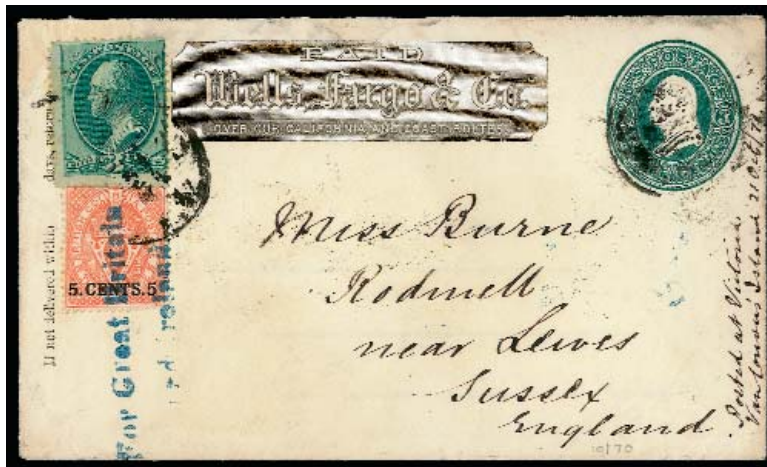 PAID
Wells, Fargo & Co.
OVER OUR CALIFORNIA AND COAST ROUTES.
U.S. POSTAGE
5. CENTS. 5
If not delivered within
days, return to
For Great Britain
and Ireland
Miss Burne
Rodmell
near Lewes
Sussex
England
Posted at Victoria
Vancouvers Island 21 Oct/70
10/70